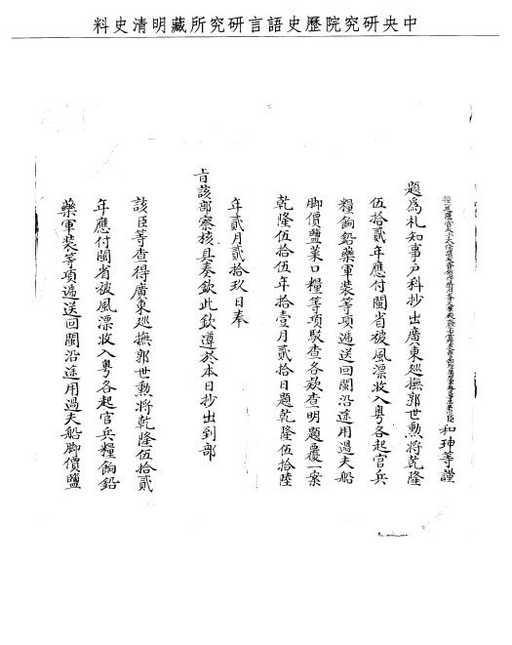 中央研究院歷史語言研究所藏明清史料
和珅等謹
題爲札知事戶科抄出廣東廵撫郭世勲將乾隆
伍拾貳年應付閩省被風漂收入粤各起官兵
糧餉鉛藥軍裝等項遞送回閩沿途用過夫船
脚價鹽菜口糧等項駁查各欵查明題覆一案
乾隆伍拾伍年拾壹月貳拾日題乾隆伍拾陸
年貳月貳拾玖日奉
旨該部察核具奏欽此欽遵於本日抄出到部
該臣等查得廣東廵撫郭世勲將乾隆伍拾貳
年應付閩省被風漂收入粤各起官兵糧餉鉛
藥軍裝等項遞送回閩沿途用過夫船脚價鹽